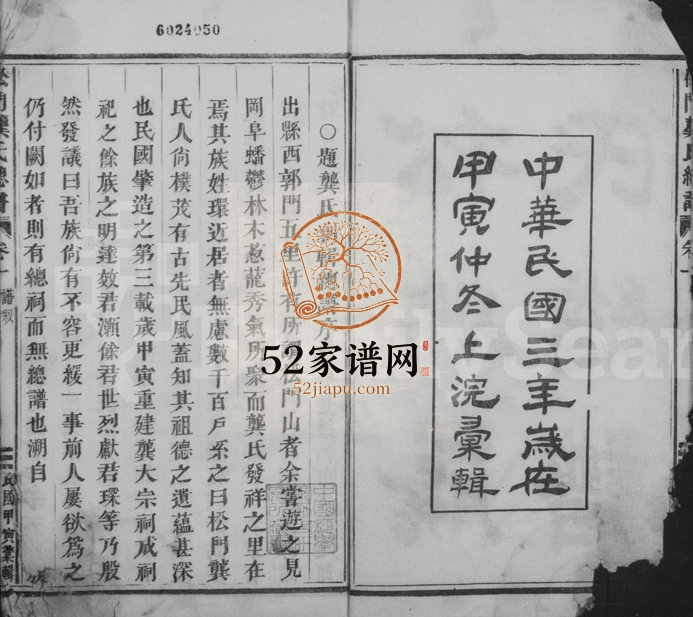 6024050
中華民國三年歲在
甲寅仲冬上浣彙輯
○題龔氏
出縣西郭門五里許有所謂松門山者余嘗遊之見
岡阜蟠鬱林木蔥蘢秀氣所聚而龔氏發祥之里在
焉其族姓環近居者無慮數千百戶系之曰松門龔
氏人尙樸茂有古先民風蓋知其祖德之遺蘊甚深
也民國肇造之第三載歲甲寅重建龔大宗祠成祠
祀之餘族之明達效君灝餘君世烈獻君琛等乃殷
然發議曰吾族尙有不容更緩一事前人屢欲爲之
仍付闕如者則有總祠而無總譜也溯自
松門龔氏總譜
卷一
譜敘
民國甲寅彙輯
松門龔氏總譜
卷一
52家谱网
52jiapu.com